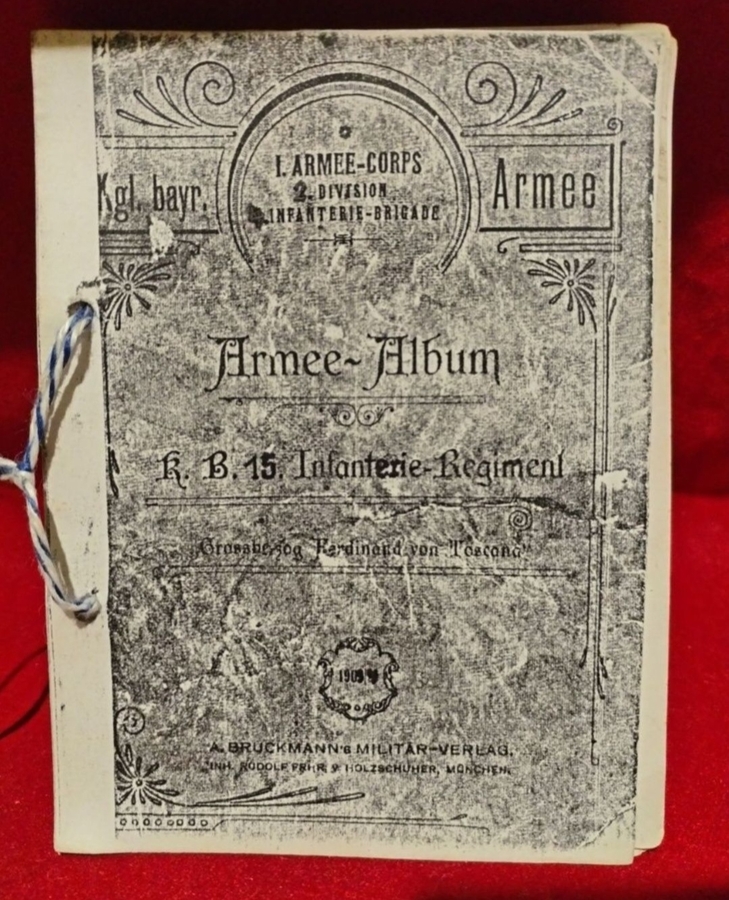 I. ARMEE-CORPS
2. DIVISION
INFANTERIE-BRIGADE
Kgl. bayr. Armee
Armee-Album
K. B. 15. Infanterie-Regiment
Grossherzog Ferdinand von Toscana"
A. BRUCKMANN's MILITÄR-VERLAG.
INH. RUDOLF FRHR. v. HOLZSCHUHER, MÜNCHEN.